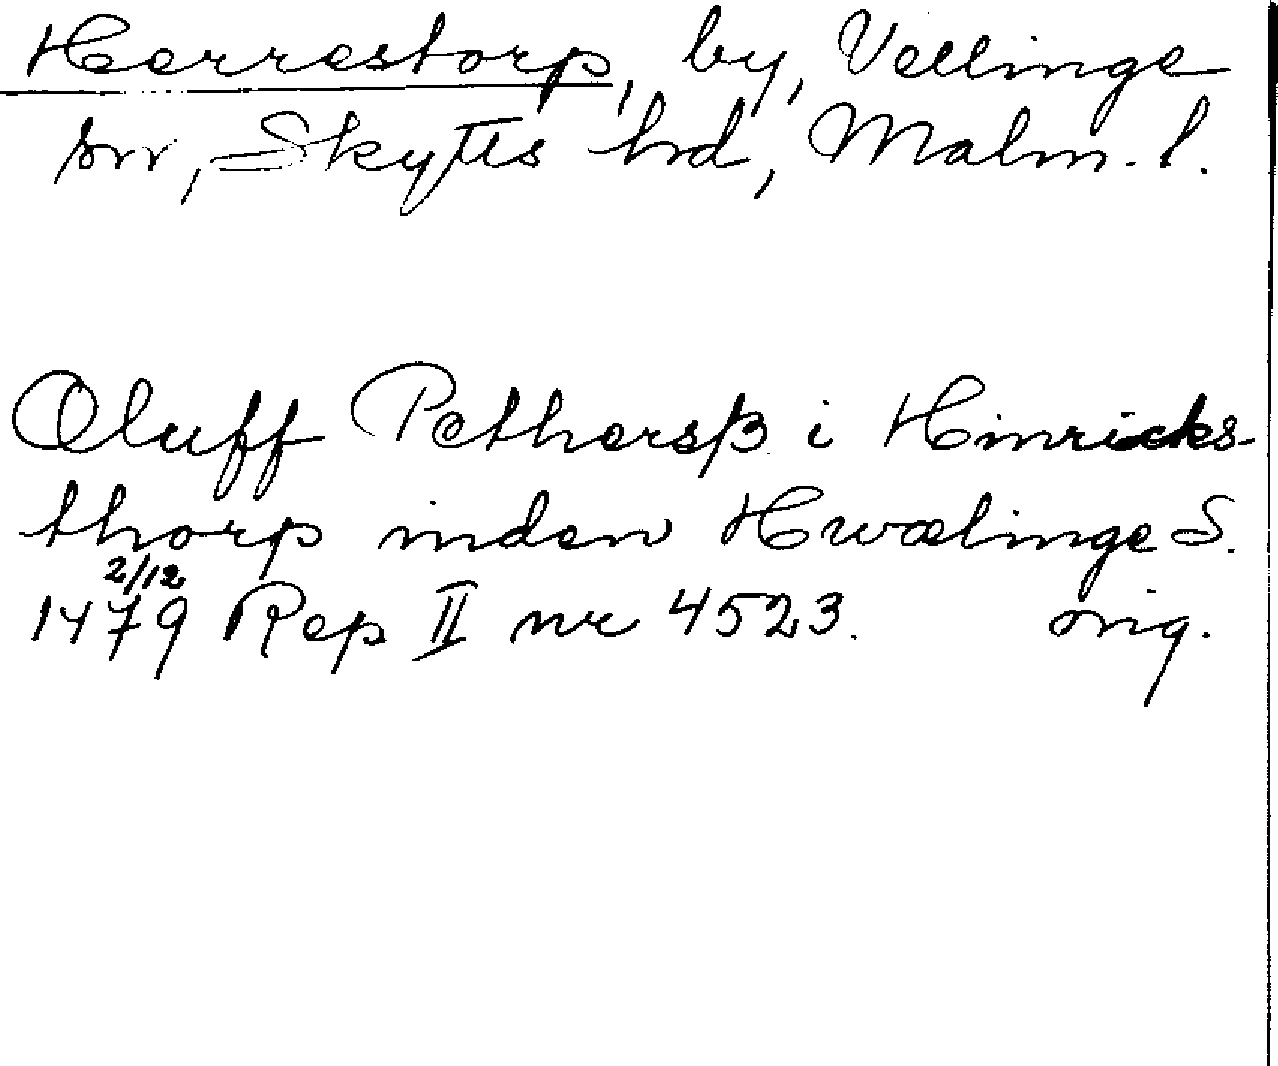 Herrestorp, by, Vellinge
sn, Skytts hd, Malm. l.
Oluff Pethersβ i Hinricks-
thorp inden Hwælinge S.
2/12
1479 Rep II nr 4523. orig.